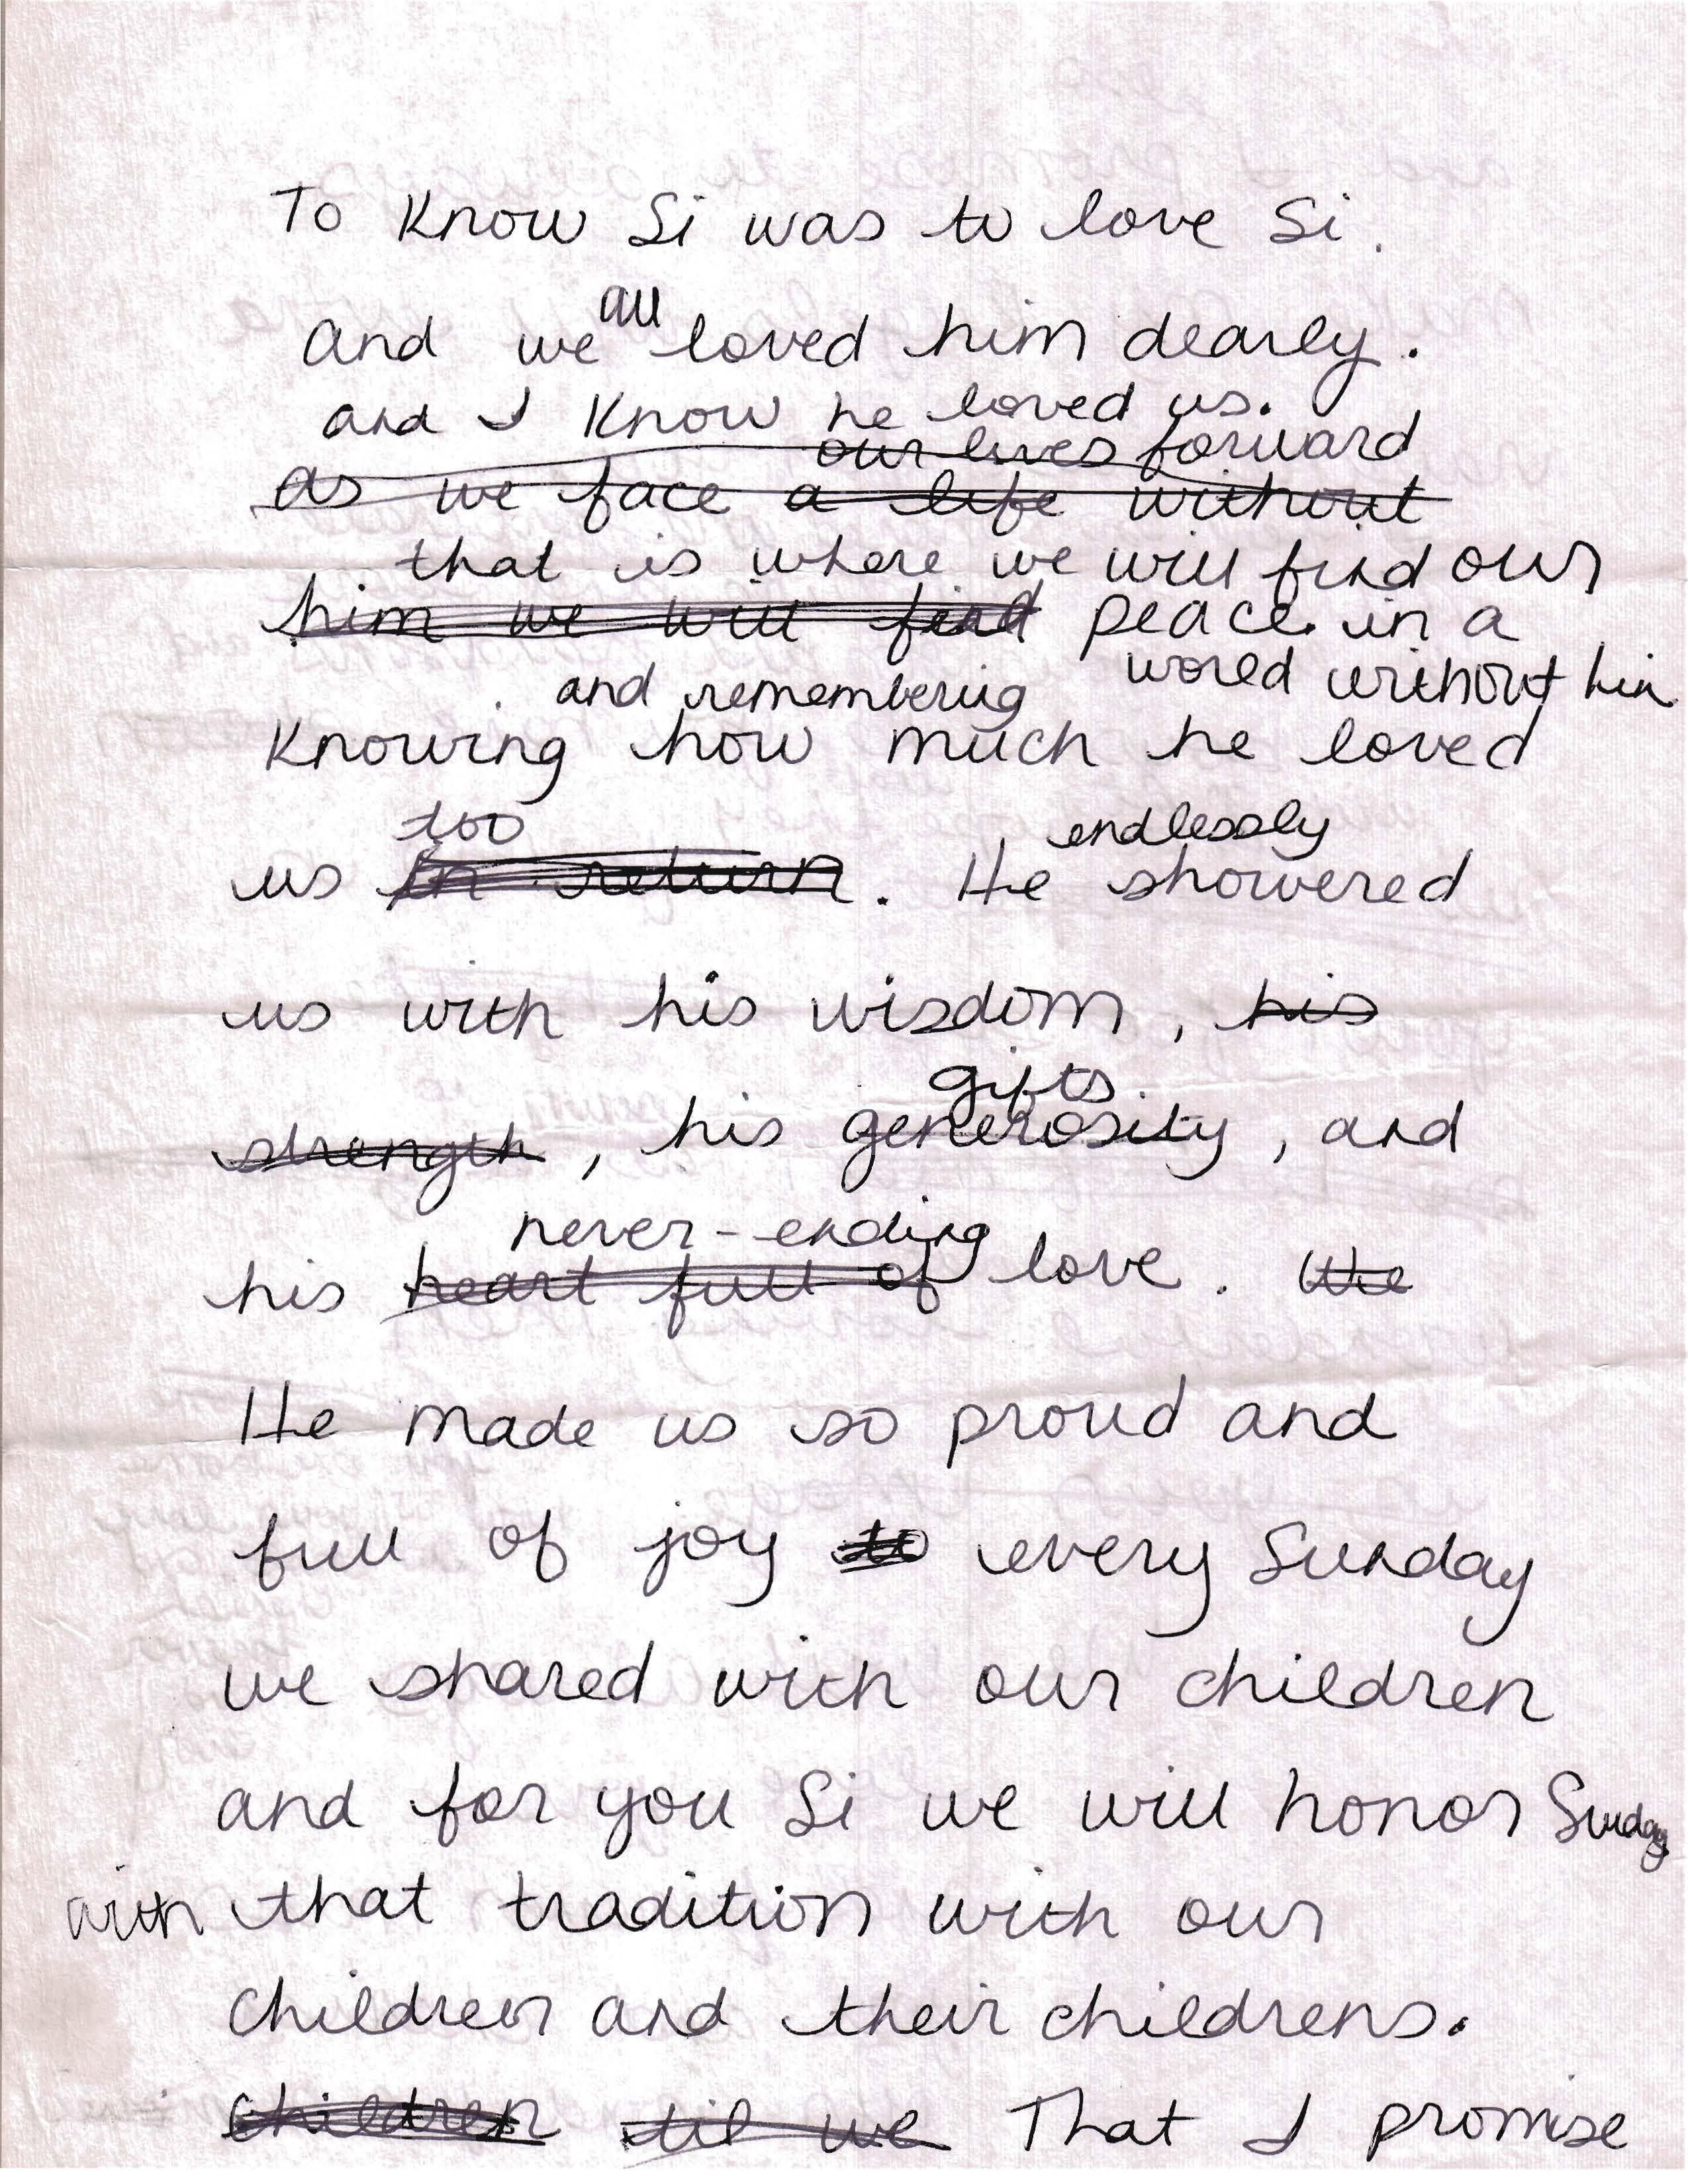 To Know Si was to love Si.
all
And we loved him dearly.
and I Know he loved us.
our lives forward
as we face a life without
that is where we will find our
him we will find peace. in a
world without him
and remembering
Knowing how much he loved
too endlessly
us in return. He showered
us with his wisdom, his
gifts
strength, his generosity, and
never-ending
his heart full of love. We
He made us so proud and
full of joy to every Sunday
we shared with our children
and for you Si we will honor Sunday
with that tradition with our
children and their childrens.
children til we That I promise